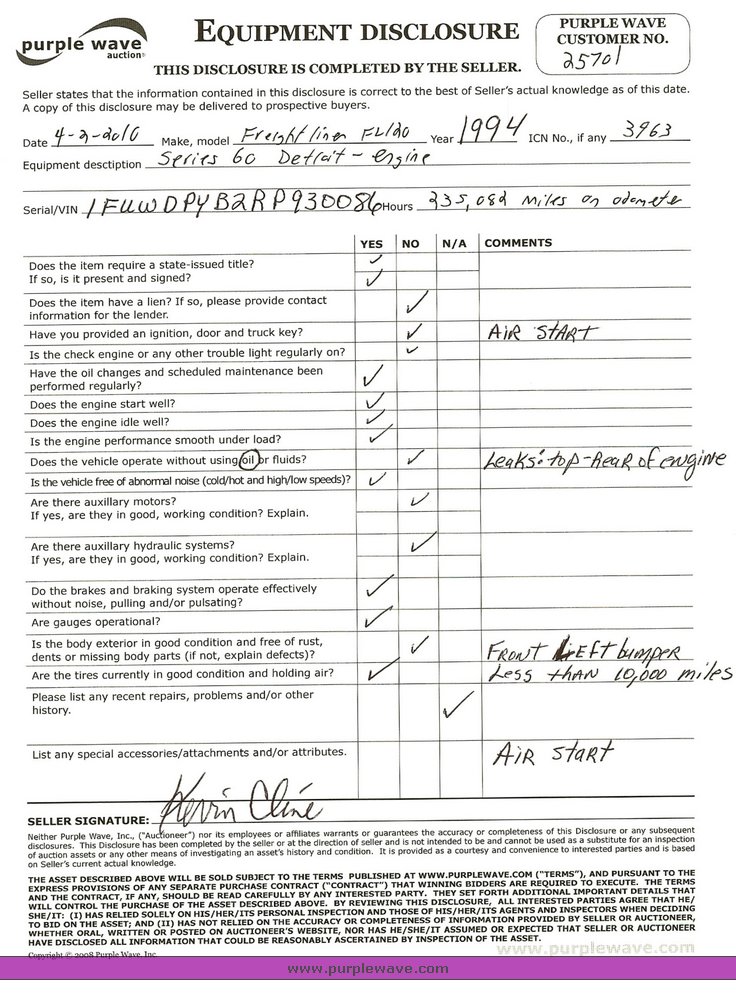 purple wave
auction
EQUIPMENT DISCLOSURE
THIS DISCLOSURE IS COMPLETED BY THE SELLER.
PURPLE WAVE
CUSTOMER NO.
25701
Seller states that the information contained in this disclosure is correct to the best of Seller's actual knowledge as of this date.
A copy of this disclosure may be delivered to prospective buyers.
Date 4-2-2010 Make, model Freightliner FL120 Year 1994 ICN No., if any 3963
Equipment desctiption Series 60 Detroit - engine
Serial/VIN 1FUWDPYB2RP930086 Hours 335,082 miles on odometer
YES NO N/A COMMENTS
Does the item require a state-issued title? ✓
If so, is it present and signed? ✓
Does the item have a lien? If so, please provide contact ✓
information for the lender.
Have you provided an ignition, door and truck key? ✓ AIR START
Is the check engine or any other trouble light regularly on? ✓
Have the oil changes and scheduled maintenance been ✓
performed regularly?
Does the engine start well? ✓
Does the engine idle well? ✓
Is the engine performance smooth under load? ✓
Does the vehicle operate without using oil or fluids? ✓ Leaks: top-Rear of engine
Is the vehicle free of abnormal noise (cold/hot and high/low speeds)? ✓
Are there auxillary motors? ✓
If yes, are they in good, working condition? Explain.
Are there auxillary hydraulic systems? ✓
If yes, are they in good, working condition? Explain.
Do the brakes and braking system operate effectively ✓
without noise, pulling and/or pulsating?
Are gauges operational? ✓
Is the body exterior in good condition and free of rust, ✓
dents or missing body parts (if not, explain defects)? FRONT LEFT bumper
Are the tires currently in good condition and holding air? ✓ Less than 10,000 miles
Please list any recent repairs, problems and/or other ✓
history.
List any special accessories/attachments and/or attributes. AIR START
SELLER SIGNATURE: Kevin Cline
Neither Purple Wave, Inc., ("Auctioneer") nor its employees or affiliates warrants or guarantees the accuracy or completeness of this Disclosure or any subsequent
disclosures. This Disclosure has been completed by the seller or at the direction of seller and is not intended to be and cannot be used as a substitute for an inspection
of auction assets or any other means of investigating an asset's history and condition. It is provided as a courtesy and convenience to interested parties and is based
on Seller's current actual knowledge.
THE ASSET DESCRIBED ABOVE WILL BE SOLD SUBJECT TO THE TERMS PUBLISHED AT WWW.PURPLEWAVE.COM ("TERMS"), AND PURSUANT TO THE
EXPRESS PROVISIONS OF ANY SEPARATE PURCHASE CONTRACT ("CONTRACT") THAT WINNING BIDDERS ARE REQUIRED TO EXECUTE. THE TERMS
AND THE CONTRACT, IF ANY, SHOULD BE READ CAREFULLY BY ANY INTERESTED PARTY. THEY SET FORTH ADDITIONAL IMPORTANT DETAILS THAT
WILL CONTROL THE PURCHASE OF THE ASSET DESCRIBED ABOVE. BY REVIEWING THIS DISCLOSURE, ALL INTERESTED PARTIES AGREE THAT HE/
SHE/IT: (I) HAS RELIED SOLELY ON HIS/HER/ITS PERSONAL INSPECTION AND THOSE OF HIS/HER/ITS AGENTS AND INSPECTORS WHEN DECIDING
TO BID ON THE ASSET; AND (II) HAS NOT RELIED ON THE ACCURACY OR COMPLETENESS OF INFORMATION PROVIDED BY SELLER OR AUCTIONEER,
WHETHER ORAL, WRITTEN OR POSTED ON AUCTIONEER'S WEBSITE, NOR HAS HE/SHE/IT ASSUMED OR EXPECTED THAT SELLER OR AUCTIONEER
HAVE DISCLOSED ALL INFORMATION THAT COULD BE REASONABLY ASCERTAINED BY INSPECTION OF THE ASSET.
www.purplewave.com
Copyright © 2008 Purple Wave, Inc.
www.purplewave.com